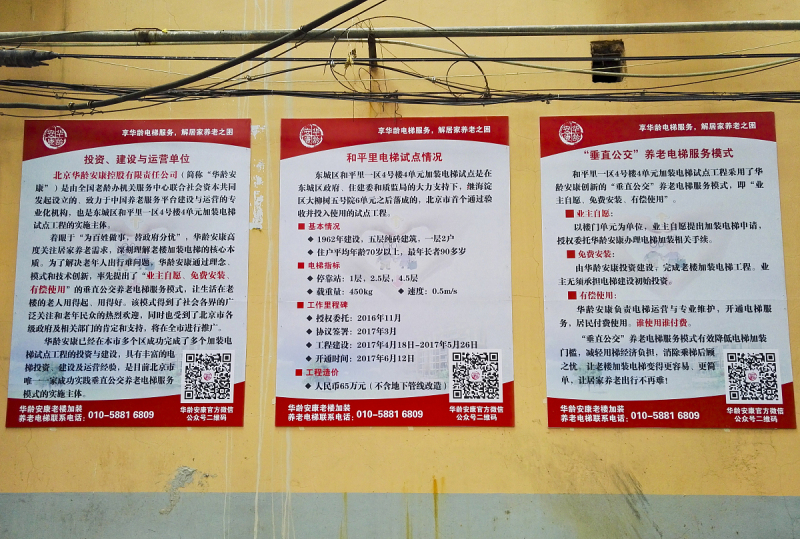 华龄安康
享华龄电梯服务，解居家养老之困
投资、建设与运营单位
北京华龄安康控股有限责任公司（简称“华龄安
康”）是由全国老龄办机关服务中心联合社会资本共同
发起设立的、致力于中国养老服务平台建设与运营的专
业化机构，也是东城区和平里一区4号楼4单元加装电梯
试点工程的实施主体。
着眼于“为百姓做事，替政府分忧”，华龄安康高
度关注居家养老需求，深刻理解老楼加装电梯的核心本
质。为了解决老年人出行难问题，华龄安康通过理念、
模式和技术创新，率先提出了“业主自愿、免费安装、
有偿使用”的垂直公交养老电梯服务模式，让生活在老
楼的老人用得起、用得好。该模式得到了社会各界的广
泛关注和老年民众的热烈欢迎，同时也受到了北京市各
级政府及相关部门的肯定和支持，将在全市进行推广。
华龄安康已经在本市多个区成功完成了多个加装电
梯试点工程的投资与建设，具有丰富的电
梯投资、建设及运营经验，是目前北京市
唯一一家成功实践垂直公交养老电梯服务
模式的实施主体。
华龄安康老楼加装
养老电梯联系电话：010-5881 6809
华龄安康官方微信
公众号二维码
华龄安康
享华龄电梯服务，解居家养老之困
和平里电梯试点情况
东城区和平里一区4号楼4单元加装电梯试点工程是在
东城区政府、住建委和质监局的大力支持下，继海淀
区大柳树五号院6单元之后落成的，北京市首个通过验
收并投入使用的试点工程。
■ 基本情况
◆ 1962年建设，五层纯砖建筑，一层2户
◆ 住户平均年龄70岁以上，最年长者90多岁
■ 电梯指标
◆ 停靠站：1层，2.5层，4.5层
◆ 载重量：450kg ◆ 速度：0.5m/s
■ 工作里程碑
◆ 授权委托：2016年11月
◆ 协议签署：2017年3月
◆ 工程建设：2017年4月18日-2017年5月26日
◆ 开通时间：2017年6月12日
■ 工程造价
◆ 人民币65万元（不含地下管线改造）
华龄安康老楼加装
养老电梯联系电话：010-5881 6809
华龄安康官方微信
公众号二维码
华龄安康
享华龄电梯服务，解居家养老之困
“垂直公交”养老电梯服务模式
和平里一区4号楼4单元加装电梯试点工程采用了
华龄安康创新的“垂直公交”养老电梯服务模式，即“业
主自愿、免费安装、有偿使用”。
■ 业主自愿：
以楼门单元为单位，业主自愿提出加装电梯申请，
授权委托华龄安康办理电梯加装相关手续。
■ 免费安装：
由华龄安康投资建设，完成老楼加装电梯工程。业
主无须承担电梯建设初始投资。
■ 有偿使用：
华龄安康负责电梯运营与专业维护，开通电梯服
务，居民付费使用。谁使用谁付费。
“垂直公交”养老电梯服务模式有效降低电梯加装
门槛，减轻用梯经济负担，消除乘梯后顾
之忧，让老楼加装电梯变得更容易、更简
单，让居家养老出行不再难！
华龄安康老楼加装
养老电梯联系电话：010-5881 6809
华龄安康官方微信
公众号二维码